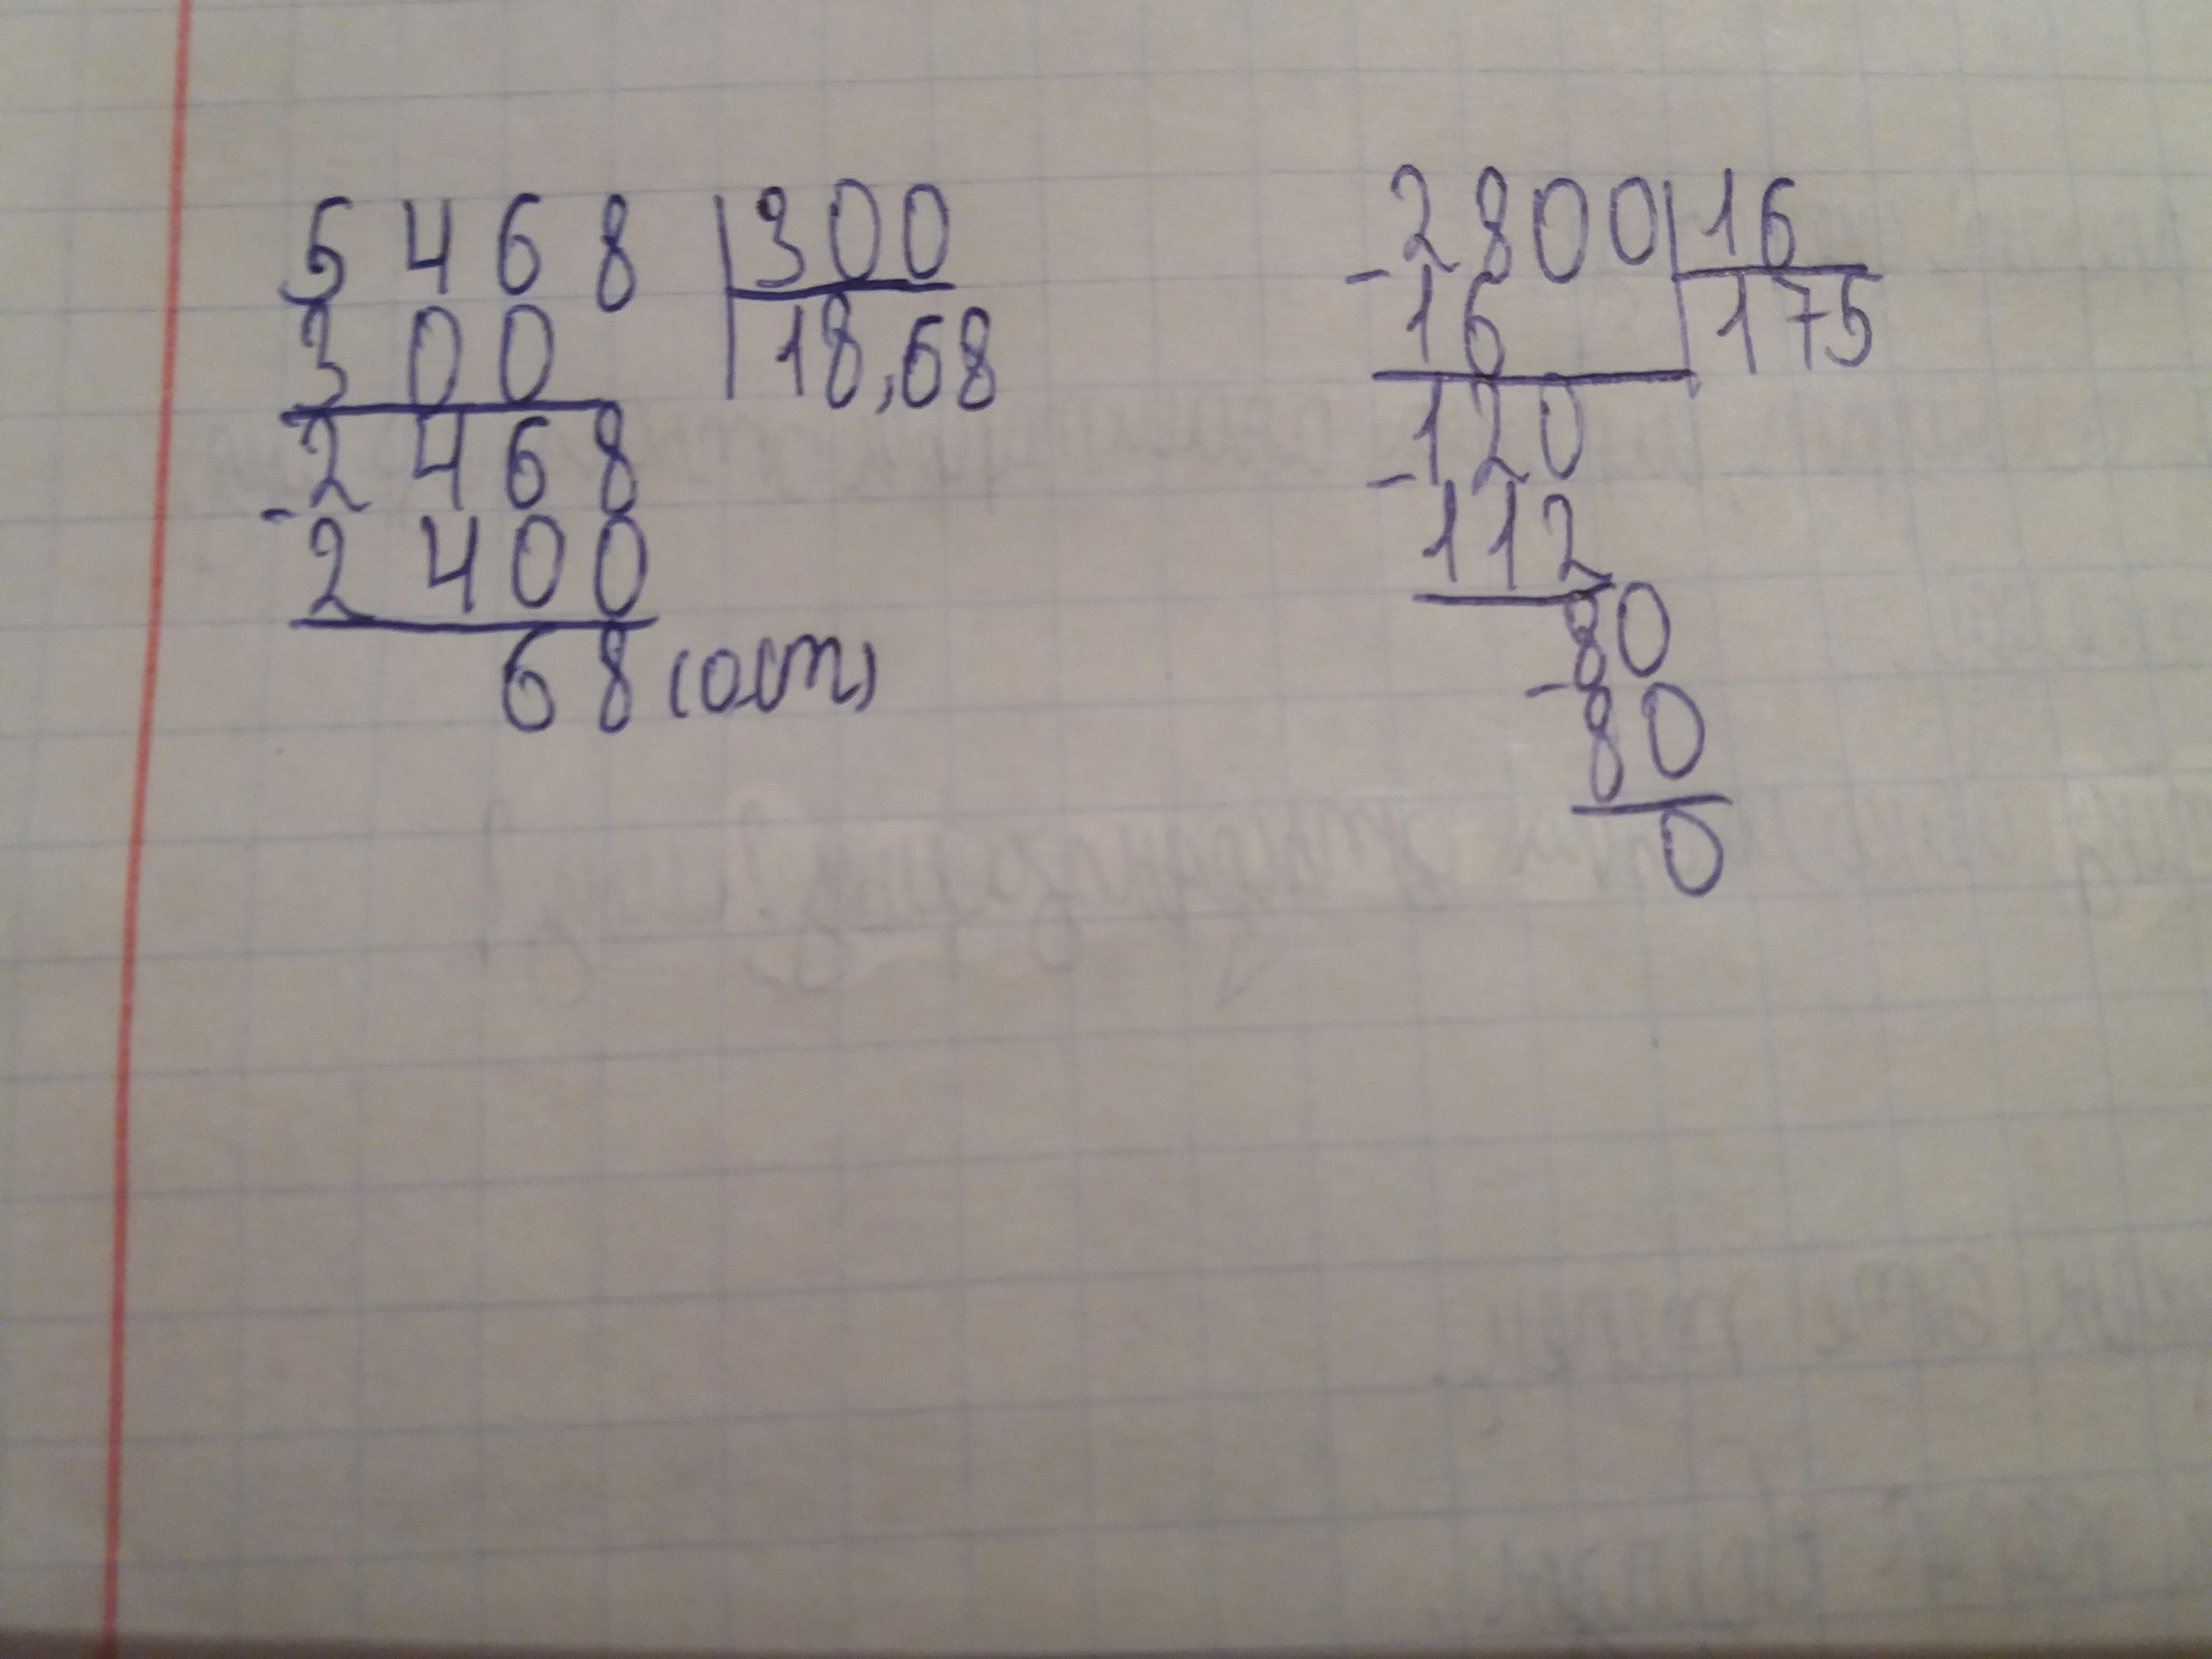 5468 | 300
300 | 18,68
2468
- 2400
68 (ост)
2800 | 16
- 16 | 175
120
- 112
80
- 80
0